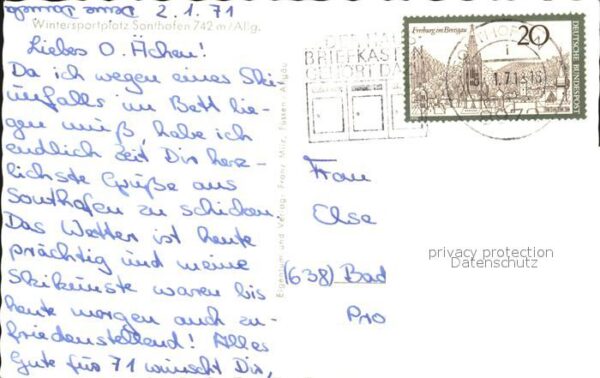 2.1.71
Wintersportplatz Sonthofen 742 m / Allg.
Liebes O. Ächen!
Da ich wegen eines Ski-
unfalls im Bett lie-
gen muß, habe ich
endlich Zeit Dir herz-
lichste Grüße aus
Sonthofen zu schicken.
Das Wetter ist heute
prächtig und meine
Skikünste waren bis
heute morgen auch zu-
friedenstellend! Alles
Gute für 71 wünscht Dir,
Deine
Eigentum und Verlag: Franz Milz, Füssen, Allgäu
BRIEFKASTEN
GEHÖRT DAZU
Freiburg im Breisgau
20
DEUTSCHE BUNDESPOST
Frau
Else
(638) Bad
privacy protection
Datenschutz